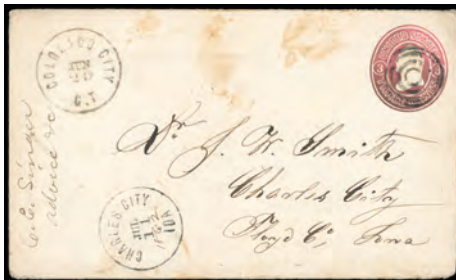 COLORADO CITY
JUN
20
C.T
C.E. Singer
advice &c
Dr J. W. Smith
Charles City
Floyd Co, Iowa
CHARLES CITY IOA
JUL